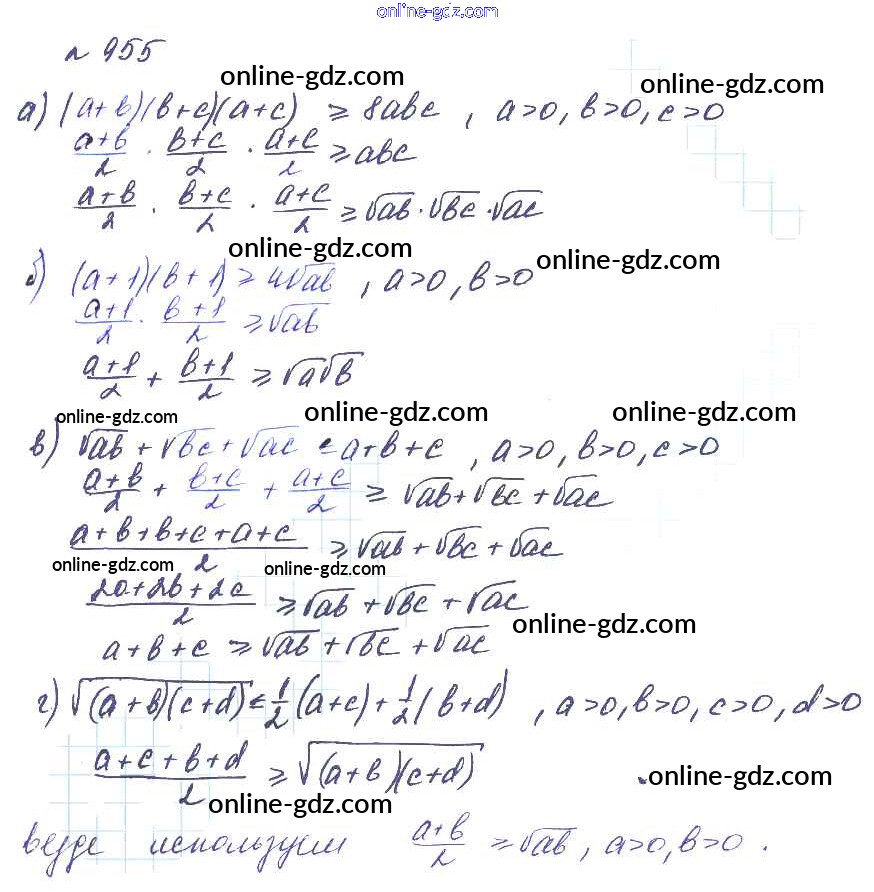 online-gdz.com
№ 955
online-gdz.com online-gdz.com
а) (a+b)(b+c)(a+c) ≥ 8abc , a>0, b>0, c>0
(a+b)/2 · (b+c)/2 · (a+c)/2 ≥ abc
(a+b)/2 · (b+c)/2 · (a+c)/2 ≥ √ab · √bc · √ac
online-gdz.com online-gdz.com
б) (a+1)(b+1) ≥ 4√ab , a>0, b>0
(a+1)/2 · (b+1)/2 ≥ √ab
(a+1)/2 + (b+1)/2 ≥ √a√b
online-gdz.com online-gdz.com online-gdz.com
в) √ab + √bc + √ac ≤ a+b+c , a>0, b>0, c>0
(a+b)/2 + (b+c)/2 + (a+c)/2 ≥ √ab + √bc + √ac
(a+b+b+c+a+c)/2 ≥ √ab + √bc + √ac
online-gdz.com online-gdz.com
(2a+2b+2c)/2 ≥ √ab + √bc + √ac
online-gdz.com
a+b+c ≥ √ab + √bc + √ac
г) √((a+b)(c+d)) ≤ 1/2 (a+c) + 1/2 (b+d) , a>0, b>0, c>0, d>0
(a+c+b+d)/2 ≥ √((a+b)(c+d))
online-gdz.com
online-gdz.com
везде используем (a+b)/2 ≥ √ab , a>0, b>0 .